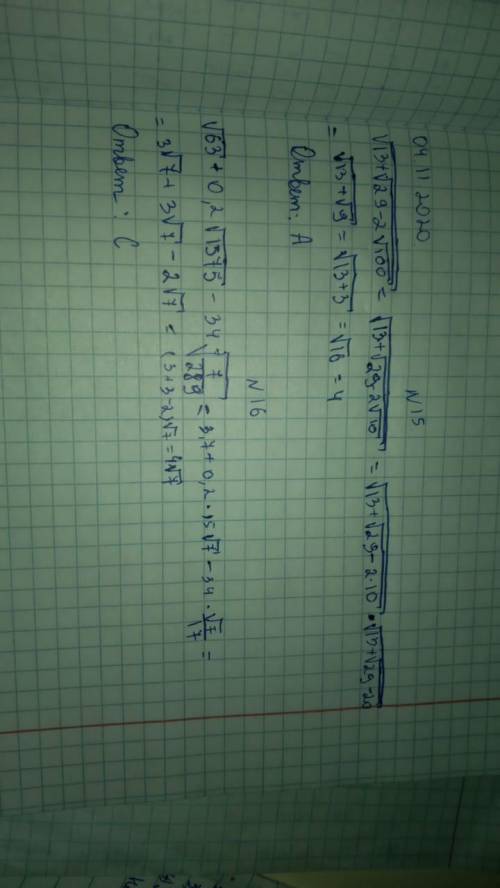 04 11 2020
N15
√13+√29-2√100 = √13+√29-2√10² = √13+√29-2·10 · √13+√29-20
= √13+√9 = √13+3 = √16 = 4
Ответ: А
N16
√63 + 0,2√1575 - 34√7/289 = 3,7+0,2·15√7-34·√7/17 =
= 3√7+3√7-2√7 = (3+3-2)√7=4√7
Ответ: С